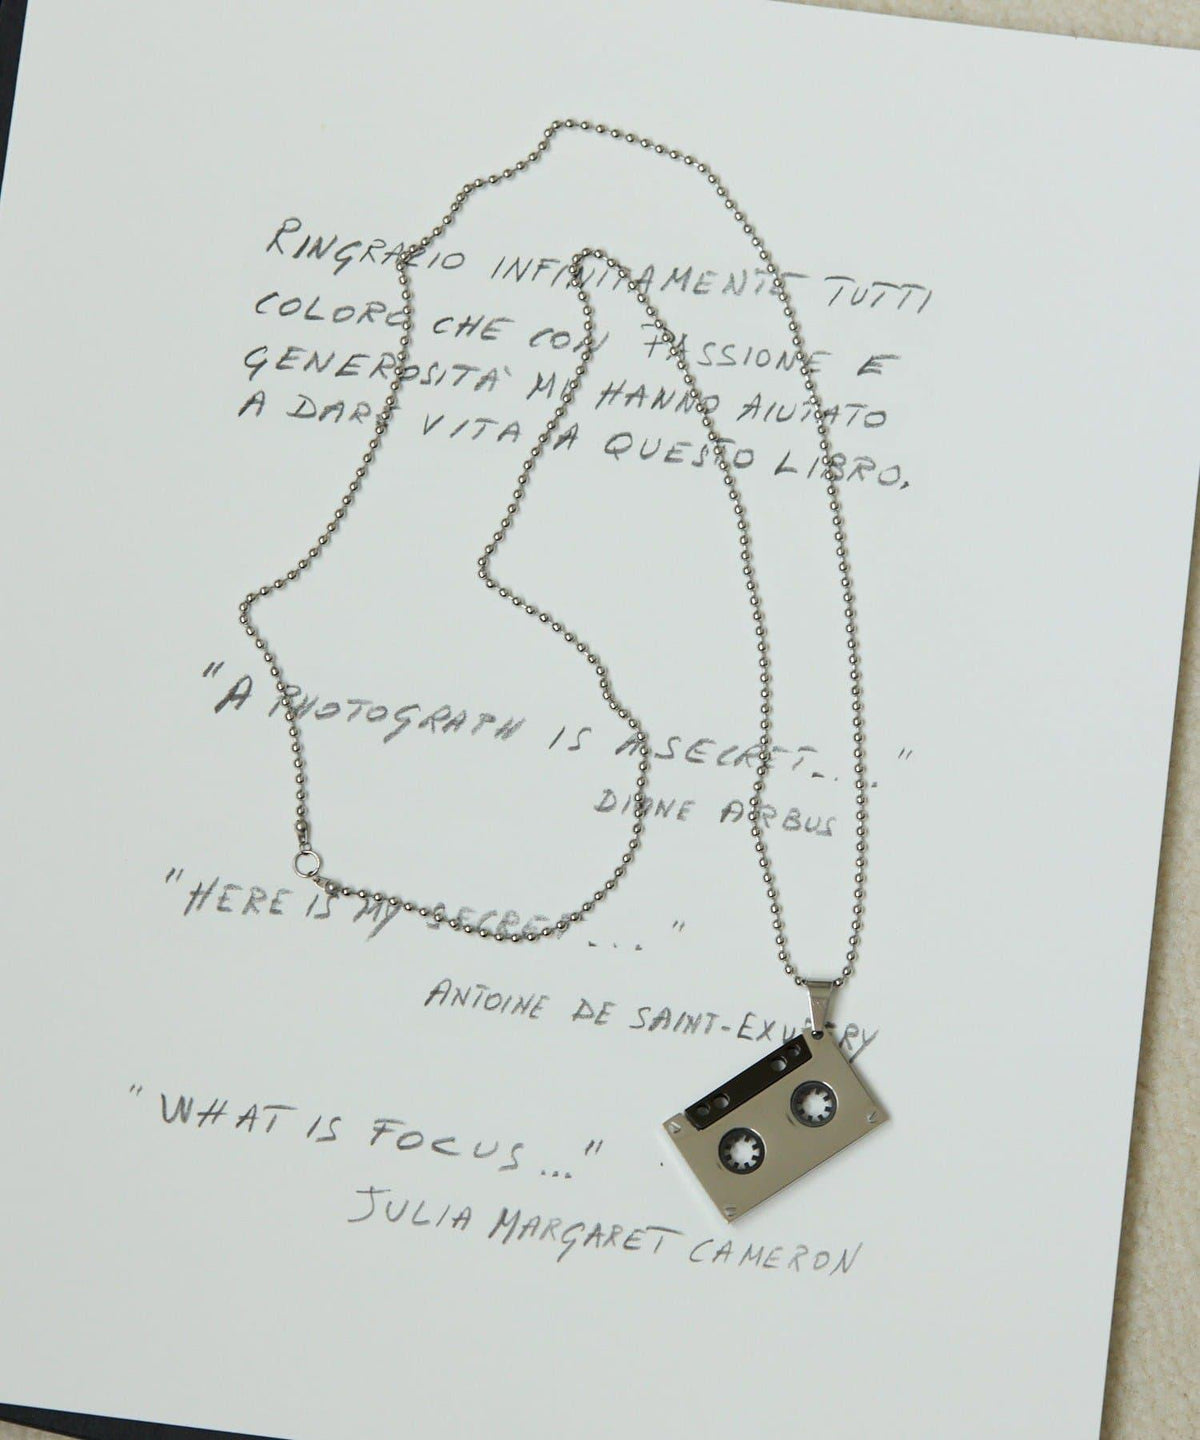 RINGRAZIO INFINITAMENTE TUTTI
COLORO CHE CON PASSIONE E
GENEROSITÀ MI HANNO AIUTATO
A DARE VITA A QUESTO LIBRO.
"A PHOTOGRAPH IS A SECRET...."
DIANE ARBUS
"HERE IS MY SECRET...."
ANTOINE DE SAINT-EXUPERY
"WHAT IS FOCUS..."
JULIA MARGARET CAMERON